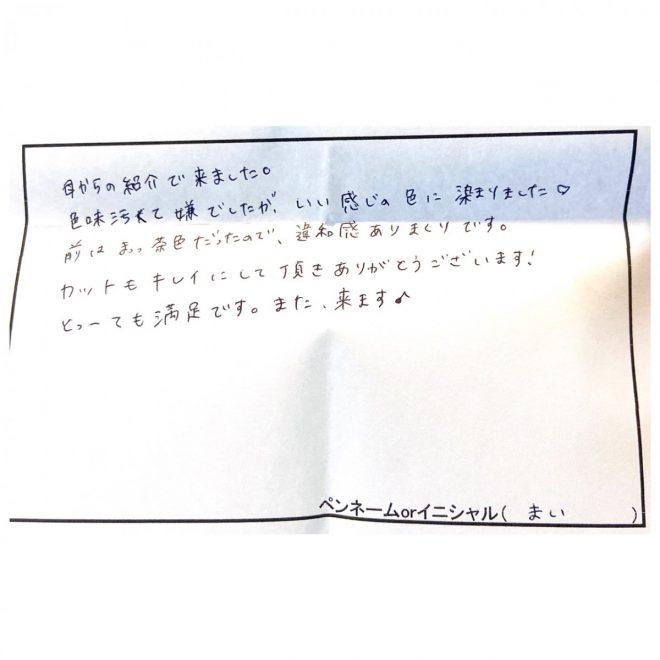 母からの紹介で来ました。
色味汚くて嫌でしたが、いい感じの色に染まりました♡
前はまっ茶色だったので、違和感ありまくりです。
カットもキレイにして頂きありがとうございます!
とっーても満足です。また、来ます♪
ペンネームorイニシャル( まい )